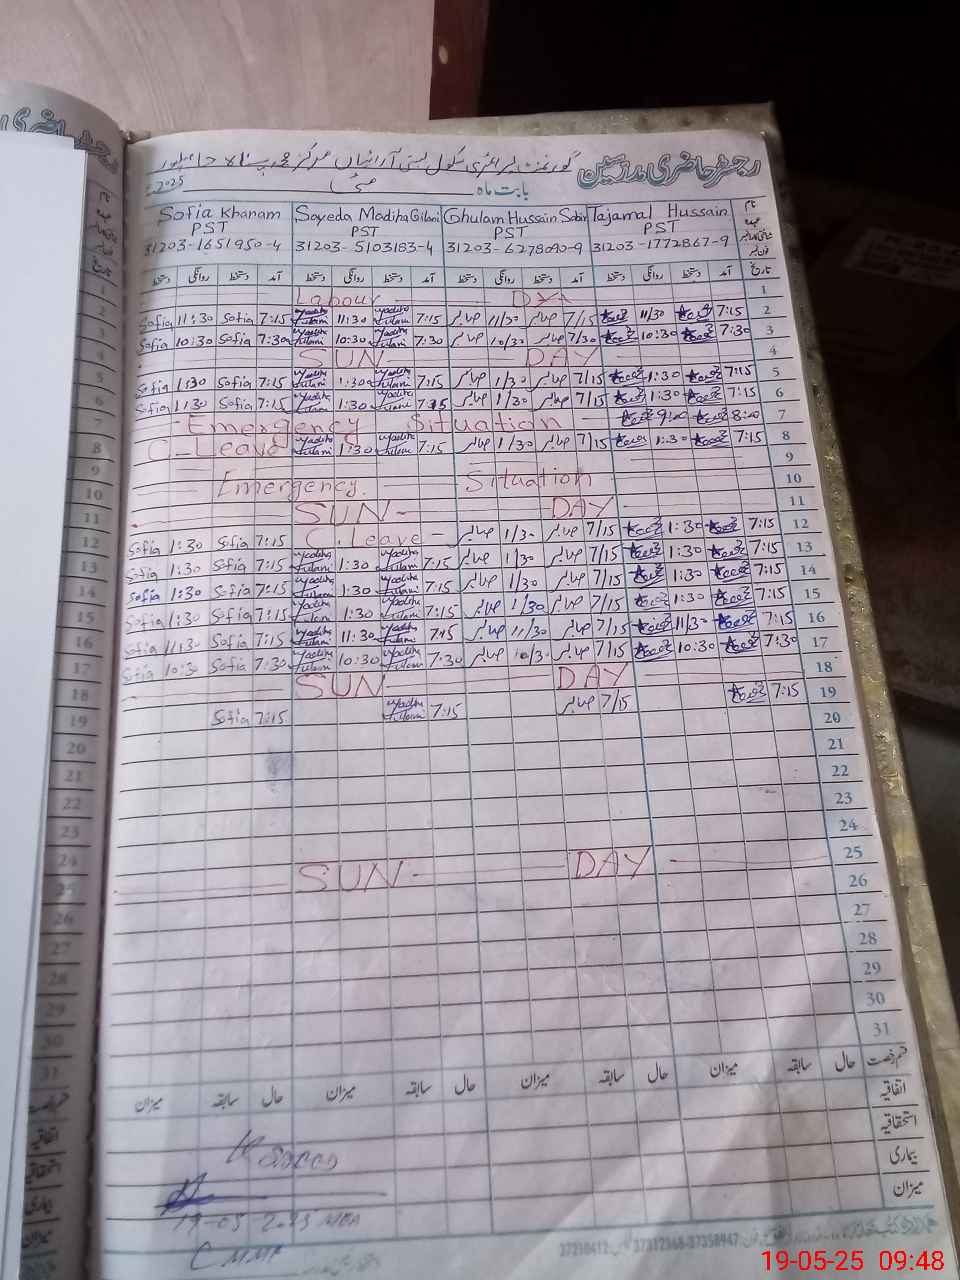 رجسٹر حاضری مدرسین گورنمنٹ پرائمری سکول بستی آرائیاں مرکز محمد پناہ
بابت ماہ مئی 2025
نام Tajamal Hussain Ghulam Hussain Sabir Sayeda Madiha Gilani Sofia Khanam
PST PST PST PST
31203-1772867-9 31203-6278090-9 31203-5103183-4 31203-1651950-4
تاریخ آمد دستخط روانگی دستخط آمد دستخط روانگی دستخط آمد دستخط روانگی دستخط آمد دستخط روانگی دستخط
1 Labour DAY
2 7:15 11/30 7/15 صابر 11/30 صابر 7:15 Madiha Gilani 11:30 Madiha Gilani 7:15 Sofia 11:30 Sofia
3 7:30 10:30 7/30 صابر 10/30 صابر 7:30 Madiha Gilani 10:30 Madiha Gilani 7:30 Sofia 10:30 Sofia
4 SUN DAY
5 7:15 1:30 7/15 صابر 1/30 صابر 7:15 Madiha Gilani 1:30 Madiha Gilani 7:15 Sofia 1:30 Sofia
6 7:15 1:30 7/15 صابر 1/30 صابر 7:15 Madiha Gilani 1:30 Madiha Gilani 7:15 Sofia 1:30 Sofia
7 8:00 9:00 Emergency Situation
8 7:15 1:30 7/15 صابر 1/30 صابر 7:15 Madiha Gilani 1:30 Madiha Gilani C-Leave
9
10 Emergency Situation
11 SUN DAY
12 7:15 1:30 7/15 صابر 1/30 صابر C.Leave 7:15 Sofia 1:30 Sofia
13 7:15 1:30 7/15 صابر 1/30 صابر 7:15 Madiha Gilani 1:30 Madiha Gilani 7:15 Sofia 1:30 Sofia
14 7:15 1:30 7/15 صابر 1/30 صابر 7:15 Madiha Gilani 1:30 Madiha Gilani 7:15 Sofia 1:30 Sofia
15 7:15 1:30 7/15 صابر 1/30 صابر 7:15 Madiha Gilani 1:30 Madiha Gilani 7:15 Sofia 1:30 Sofia
16 7:15 11/30 7/15 صابر 11/30 صابر 7:15 Madiha Gilani 11:30 Madiha Gilani 7:15 Sofia 11:30 Sofia
17 7:30 10:30 7/15 صابر 10/30 صابر 7:30 Madiha Gilani 10:30 Madiha Gilani 7:30 Sofia 10:30 Sofia
18 SUN DAY
19 7:15 7/15 صابر 7:15 Madiha Gilani 7:15 Sofia
20
21
22
23
24
25 SUN DAY
26
27
28
29
30
31
قسم رخصت حال سابقہ میزان حال سابقہ میزان حال سابقہ میزان حال سابقہ میزان
اتفاقیہ
استحقاقیہ
بیماری
میزان
37358947
37312368
37210412
19-05-25 09:48